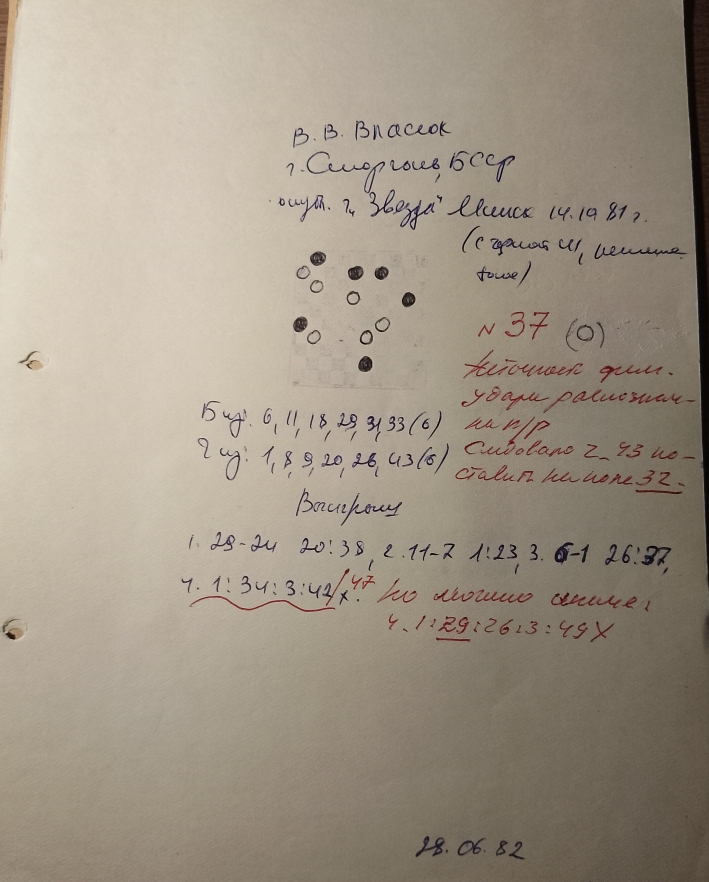 В. В. Власюк
г. Сморгонь, БССР
опубл. г. "Звезда" Минск 14.10 81 г.
№ 37 (0)
Неточность фин.
удара
на п/р
Следовало ч. 43 по-
ставить на поле 32.
Б ш: 6, 11, 18, 29, 31, 33 (6)
Ч ш: 1, 8, 9, 20, 26, 43 (6)
Выигрыш
1. 29-24 20:38, 2. 11-7 1:23, 3. 6-1 26:37,
4. 1:34:3:42/47 х. Но можно иначе:
4. 1:29:26:3:49 Х
28.06.82